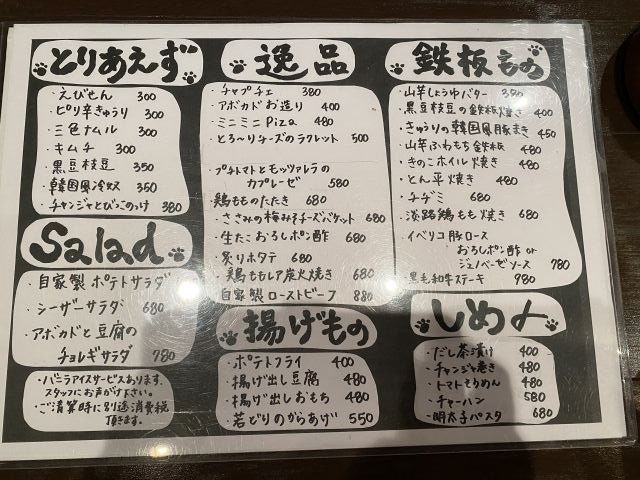 とりあえず
・えびせん 300
・ピリ辛きゅうり 300
・三色ナムル 300
・キムチ 300
・黒豆枝豆 350
・韓国風冷奴 350
・チャンジャとびっこのっけ 380
Salad
・自家製ポテトサラダ 480
・シーザーサラダ 680
・アボカドと豆腐の
チョレギサラダ 780
・バニラアイスサービスあります。
スタッフにお声がけ下さい。
・ご清算時に別途消費税
頂きます。
逸品
・チャプチェ 380
・アボカドお造り 400
・ミニミニPizza 480
・とろ〜りチーズのラクレット 500
・プチトマトとモッツァレラの
カプレーゼ 580
・鶏もものたたき 680
・ささみの梅みそチーズバケット 680
・生たこおろしポン酢 680
・炙りホタテ 680
・鶏ももレア炭火焼き 680
・自家製ローストビーフ 880
揚げもの
・ポテトフライ 400
・揚げ出し豆腐 480
・揚げ出しおもち 480
・若どりのからあげ 550
鉄板もの
・山芋しょうゆバター 350
・黒豆枝豆の鉄板焼き 400
・きゅうりの韓国風豚まき 450
・山芋ふわもち鉄板 480
・きのこホイル焼き 480
・とん平焼き 480
・チヂミ 680
・淡路鶏もも焼き 680
・イベリコ豚ロース
おろしポン酢 or
ジェノベーゼソース 780
・黒毛和牛ステーキ 980
しめ
・だし茶漬け 400
・チャンジャ巻き 480
・トマトそうめん 480
・チャーハン 580
・明太子パスタ 680